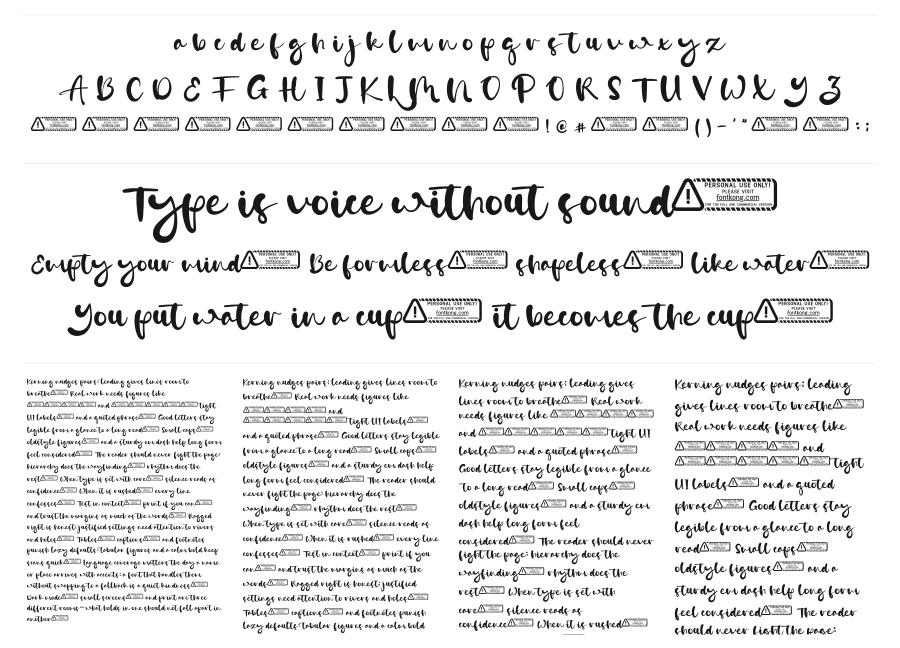 a b c d e f g h i j k l m n o p q r s t u v w x y z
A B C D E F G H I J K L M N O P Q R S T U V W X Y Z
! @ # ( ) – ' " : ;
Type is voice without sound PERSONAL USE ONLY! PLEASE VISIT fontkong.com FOR THE FULL AND COMMERCIAL VERSION
Empty your mind Be formless shapeless like water
You put water in a cup it becomes the cup
Kerning nudges pairs; leading gives lines room to
breathe Real work needs figures like
and tight
UI labels and a quoted phrase Good letters stay
legible from a glance to a long read Small caps
oldstyle figures and a sturdy em dash help long form
feel considered The reader should never fight the page;
hierarchy does the wayfinding rhythm does the
rest When type is set with care silence reads as
confidence When it is rushed every line
confesses Test in context print if you can
and trust the margins as much as the words Ragged
right is honest; justified settings need attention to rivers
and holes Tables captions and footnotes
punish lazy defaults; tabular figures and a calm bold keep
scans quick Language coverage matters the day a name
or place arrives with accents; a font that handles them
without swapping to a fallback is a quiet kindness
Dark mode small screens and print are three
different rooms—what holds in one should not fall apart in
another
Kerning nudges pairs; leading gives lines room to
breathe Real work needs figures like
and
tight UI labels
and a quoted phrase Good letters stay legible
from a glance to a long read Small caps
oldstyle figures and a sturdy em dash help
long form feel considered The reader should
never fight the page; hierarchy does the
wayfinding rhythm does the rest
When type is set with care silence reads as
confidence When it is rushed every line
confesses Test in context print if you
can and trust the margins as much as the
words Ragged right is honest; justified
settings need attention to rivers and holes
Tables captions and footnotes punish
lazy defaults; tabular figures and a calm bold
Kerning nudges pairs; leading gives
lines room to breathe Real work
needs figures like
and tight UI
labels and a quoted phrase
Good letters stay legible from a glance
to a long read Small caps
oldstyle figures and a sturdy em
dash help long form feel
considered The reader should never
fight the page; hierarchy does the
wayfinding rhythm does the
rest When type is set with
care silence reads as
confidence When it is rushed
Kerning nudges pairs; leading
gives lines room to breathe
Real work needs figures like
and
tight
UI labels and a quoted
phrase Good letters stay
legible from a glance to a long
read Small caps
oldstyle figures and a
sturdy em dash help long form
feel considered The reader
should never fight the page;